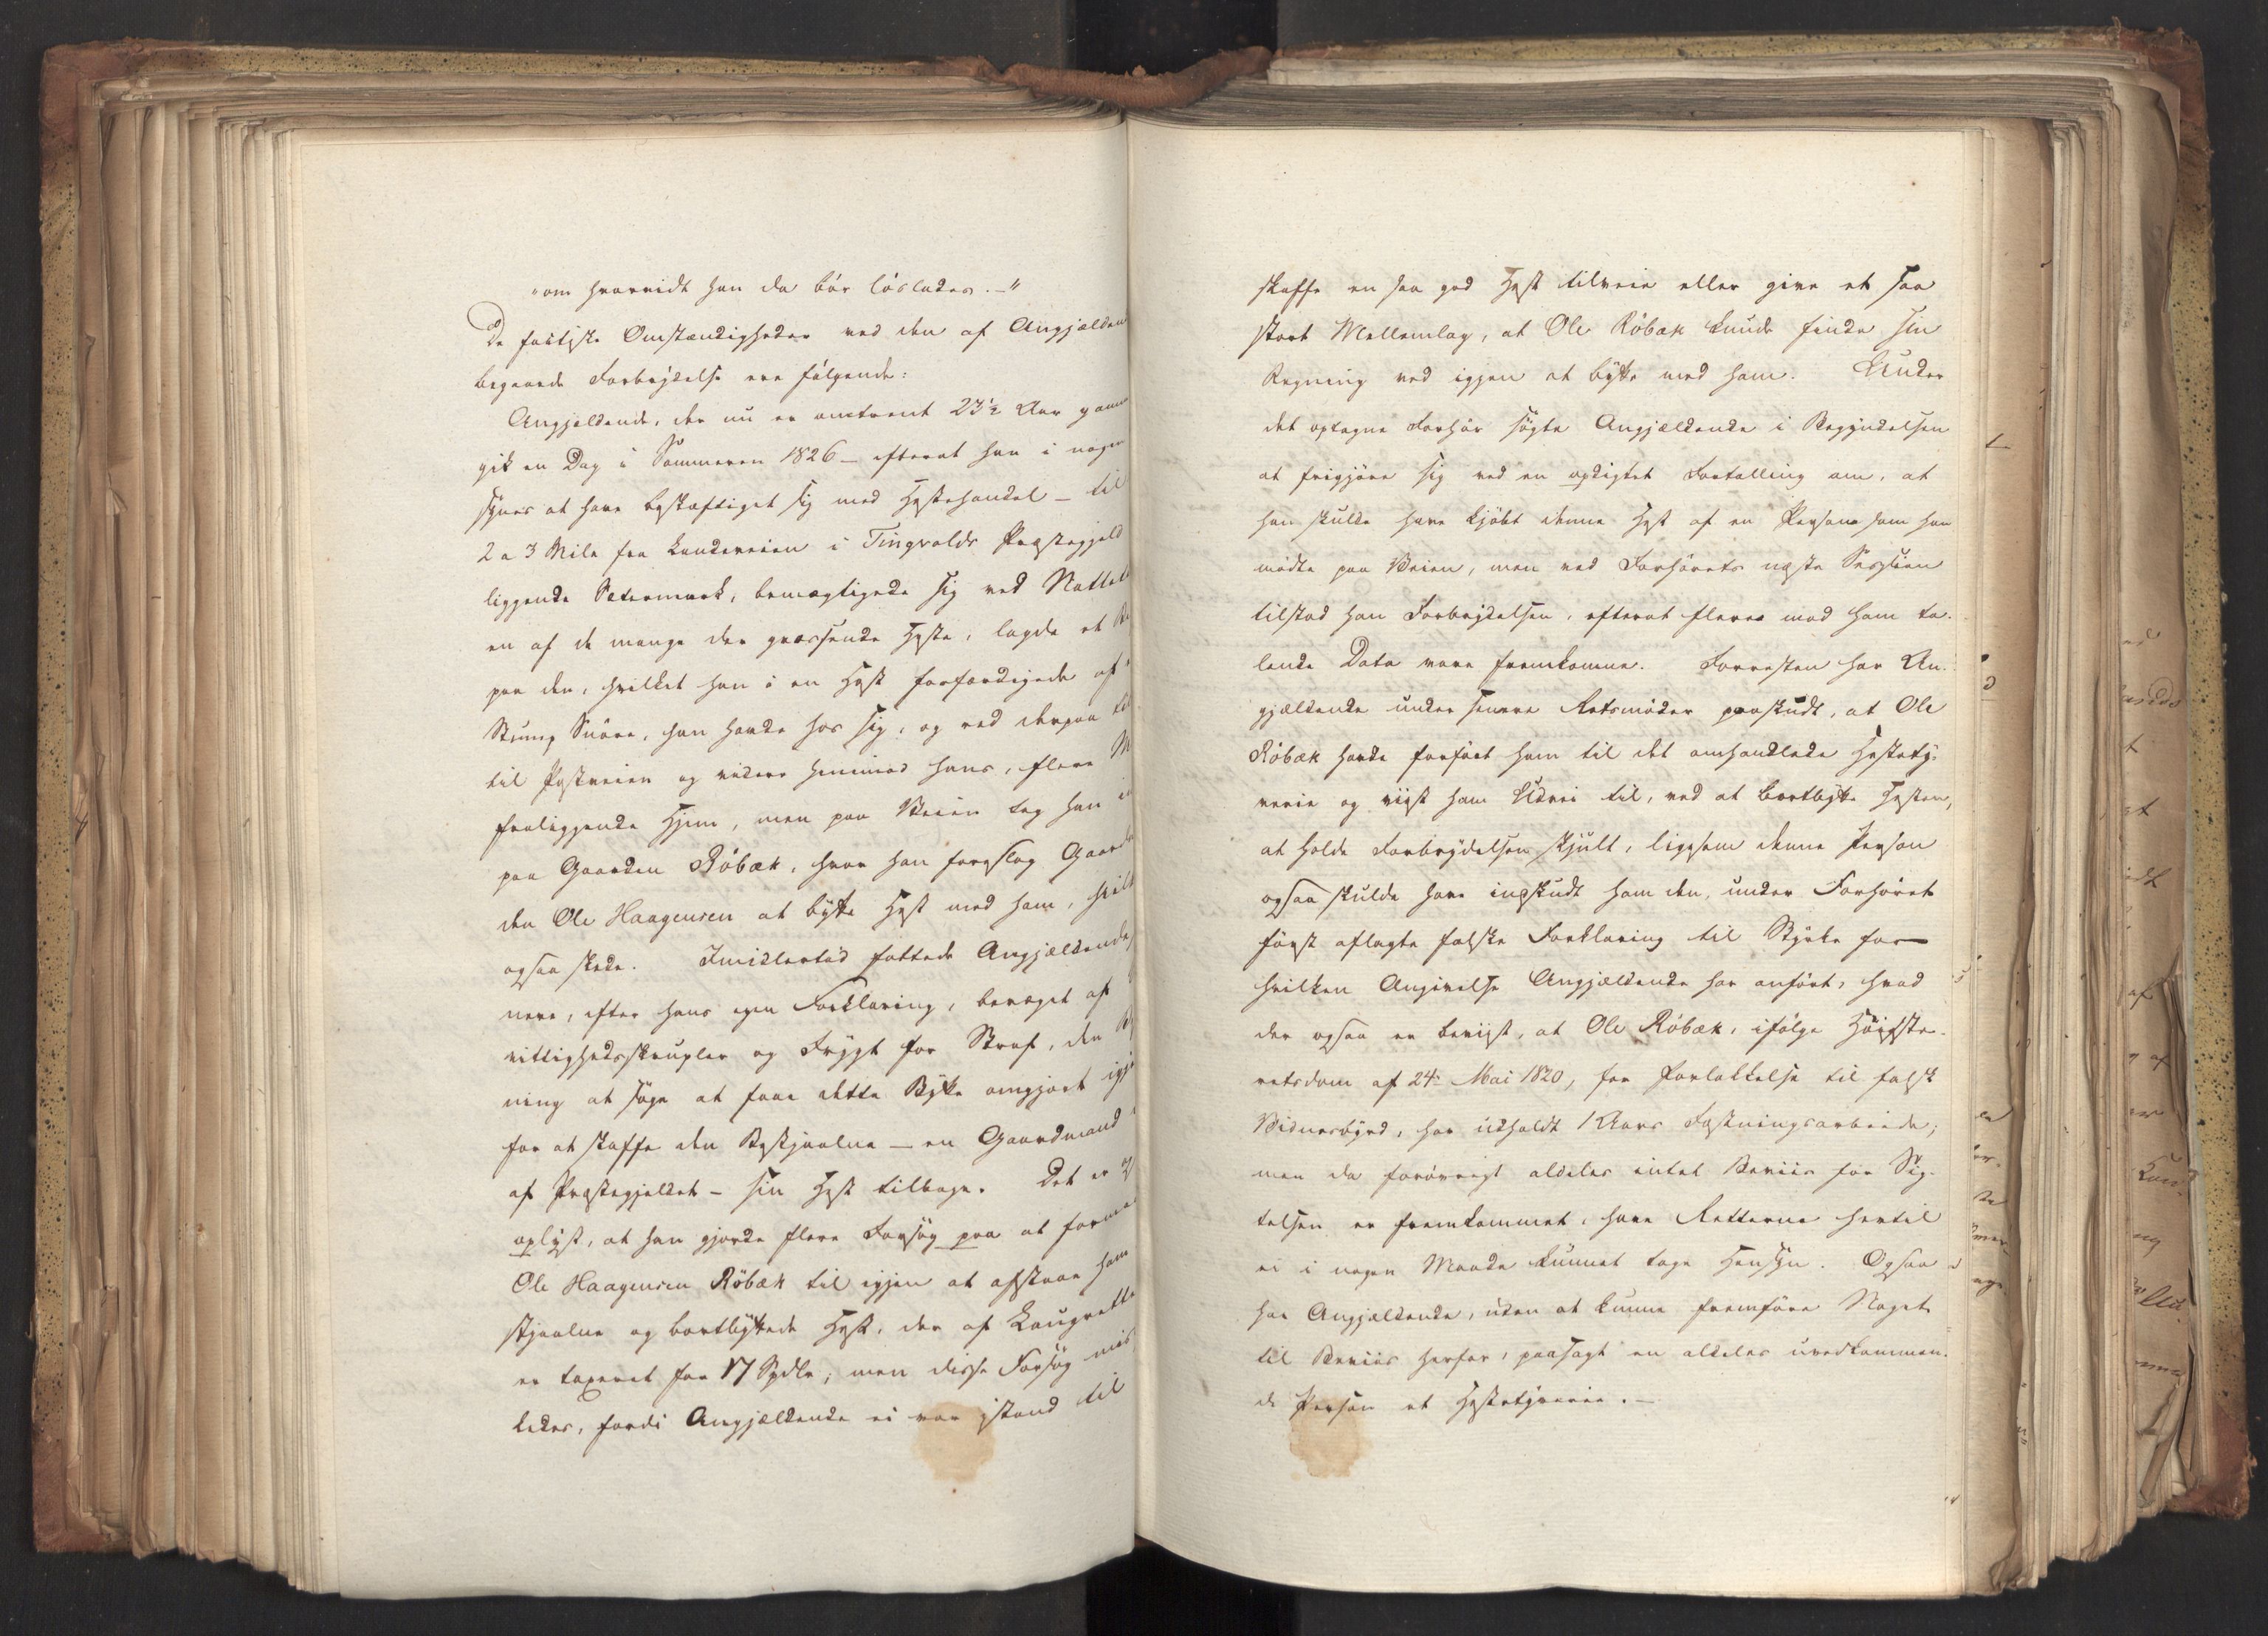 "om hvorvidt han da bør løslades.-"
De factiske Omstændigheder ved den af Angjælden
begaaede Forbrydelse ere følgende:
Angjældende, der nu er omtrent 23½ Aar gam
gik en Dag i Sommeren 1826 – efterat han i nogen
synes at have beskæftiget sig med Hestehandel – til
2 a 3 Mile fra Landeveien i Tingvolds Præstegjeld
liggende Sætermark, bemægtigede sig ved Nattet
en af de mange der græssende Heste, lagde et
paa den, hvilket han i en Hast forfærdigede af
Stump Snøre, han havde hos sig, og red derpaa til
til Postveien og videre henimod hans, flere M
fraliggende Hjem, men paa Veien tog han in
paa Gaarden Röbæk, hvor han foreslog Gaard
den Ole Haagensen at bytte Hest med ham, hvilk
ogsaa skede. Imidlertid fattede Angjældende
nere, efter hans egen Forklaring, bevæget af
vittighedsskrupler og Frygt for Straf, den B
ning at søge at faae dette Bytte omgjort igje
for at skaffe den Bestjaalne – en Gaardmand
af Præstegjeldet – sin Hest tilbage. Det er
oplyst, at han gjorde flere Forsøg paa at formaa
Ole Haagensen Röbæk til igjen at afstaae ham
stjaalne og bortbyttede Hest, der af Laugrette
er taxeret for 17 Spdlr, men disse Forsøg mis
lededes, fordi Angjældende ei var istand til
skaffe en saa god Hest tilveie eller give et saa
stort Mellemlag, at Ole Röbæk kunde finde sin
Regning ved igjen at bytte med ham. Under
det optagne Forhør søgte Angjældende i Begyndelsen
at frigjøre sig ved en opdigtet Fortælling om, at
han skulde have kjøbt denne Hest af en Person som han
mødte paa Veien, men ved Forhørets næste Session
tilstod han Forbrydelsen, efterat flere mod ham ta-
lende Data vare fremkomne. Forresten har An-
gjældende under senere Retsmøder paaskudt, at Ole
Röbæk havde forført ham til det omhandlede Hestety-
verie og viist ham Udvei til, ved at bortbytte Hesten,
at holde Forbrydelsen skjult, ligesom denne Person
ogsaa skulde have indskudt ham den, under Forhøret
først aflagte falske Forklaring til Styrke for
hvilken Angivelse Angjældende har anført, hvad
der ogsaa er beviist, at Ole Röbæk, ifølge Høieste-
retsdom af 24de Mai 1820, for Forlokkelse til falsk
Vidnesbyrd, har udholdt 1 Aars Fæstningsarbeide;
men da forøvrigt aldeles intet Beviis for Sig-
telsen er fremkommet, have Retterne hertil
ei i nogen Maade kunnet tage Hensyn. Ogsaa
har Angjældende, uden at kunne fremføre Noget
til Beviis herfor, paasagt en aldeles uvedkommen-
de Person et Hestetyverie.-